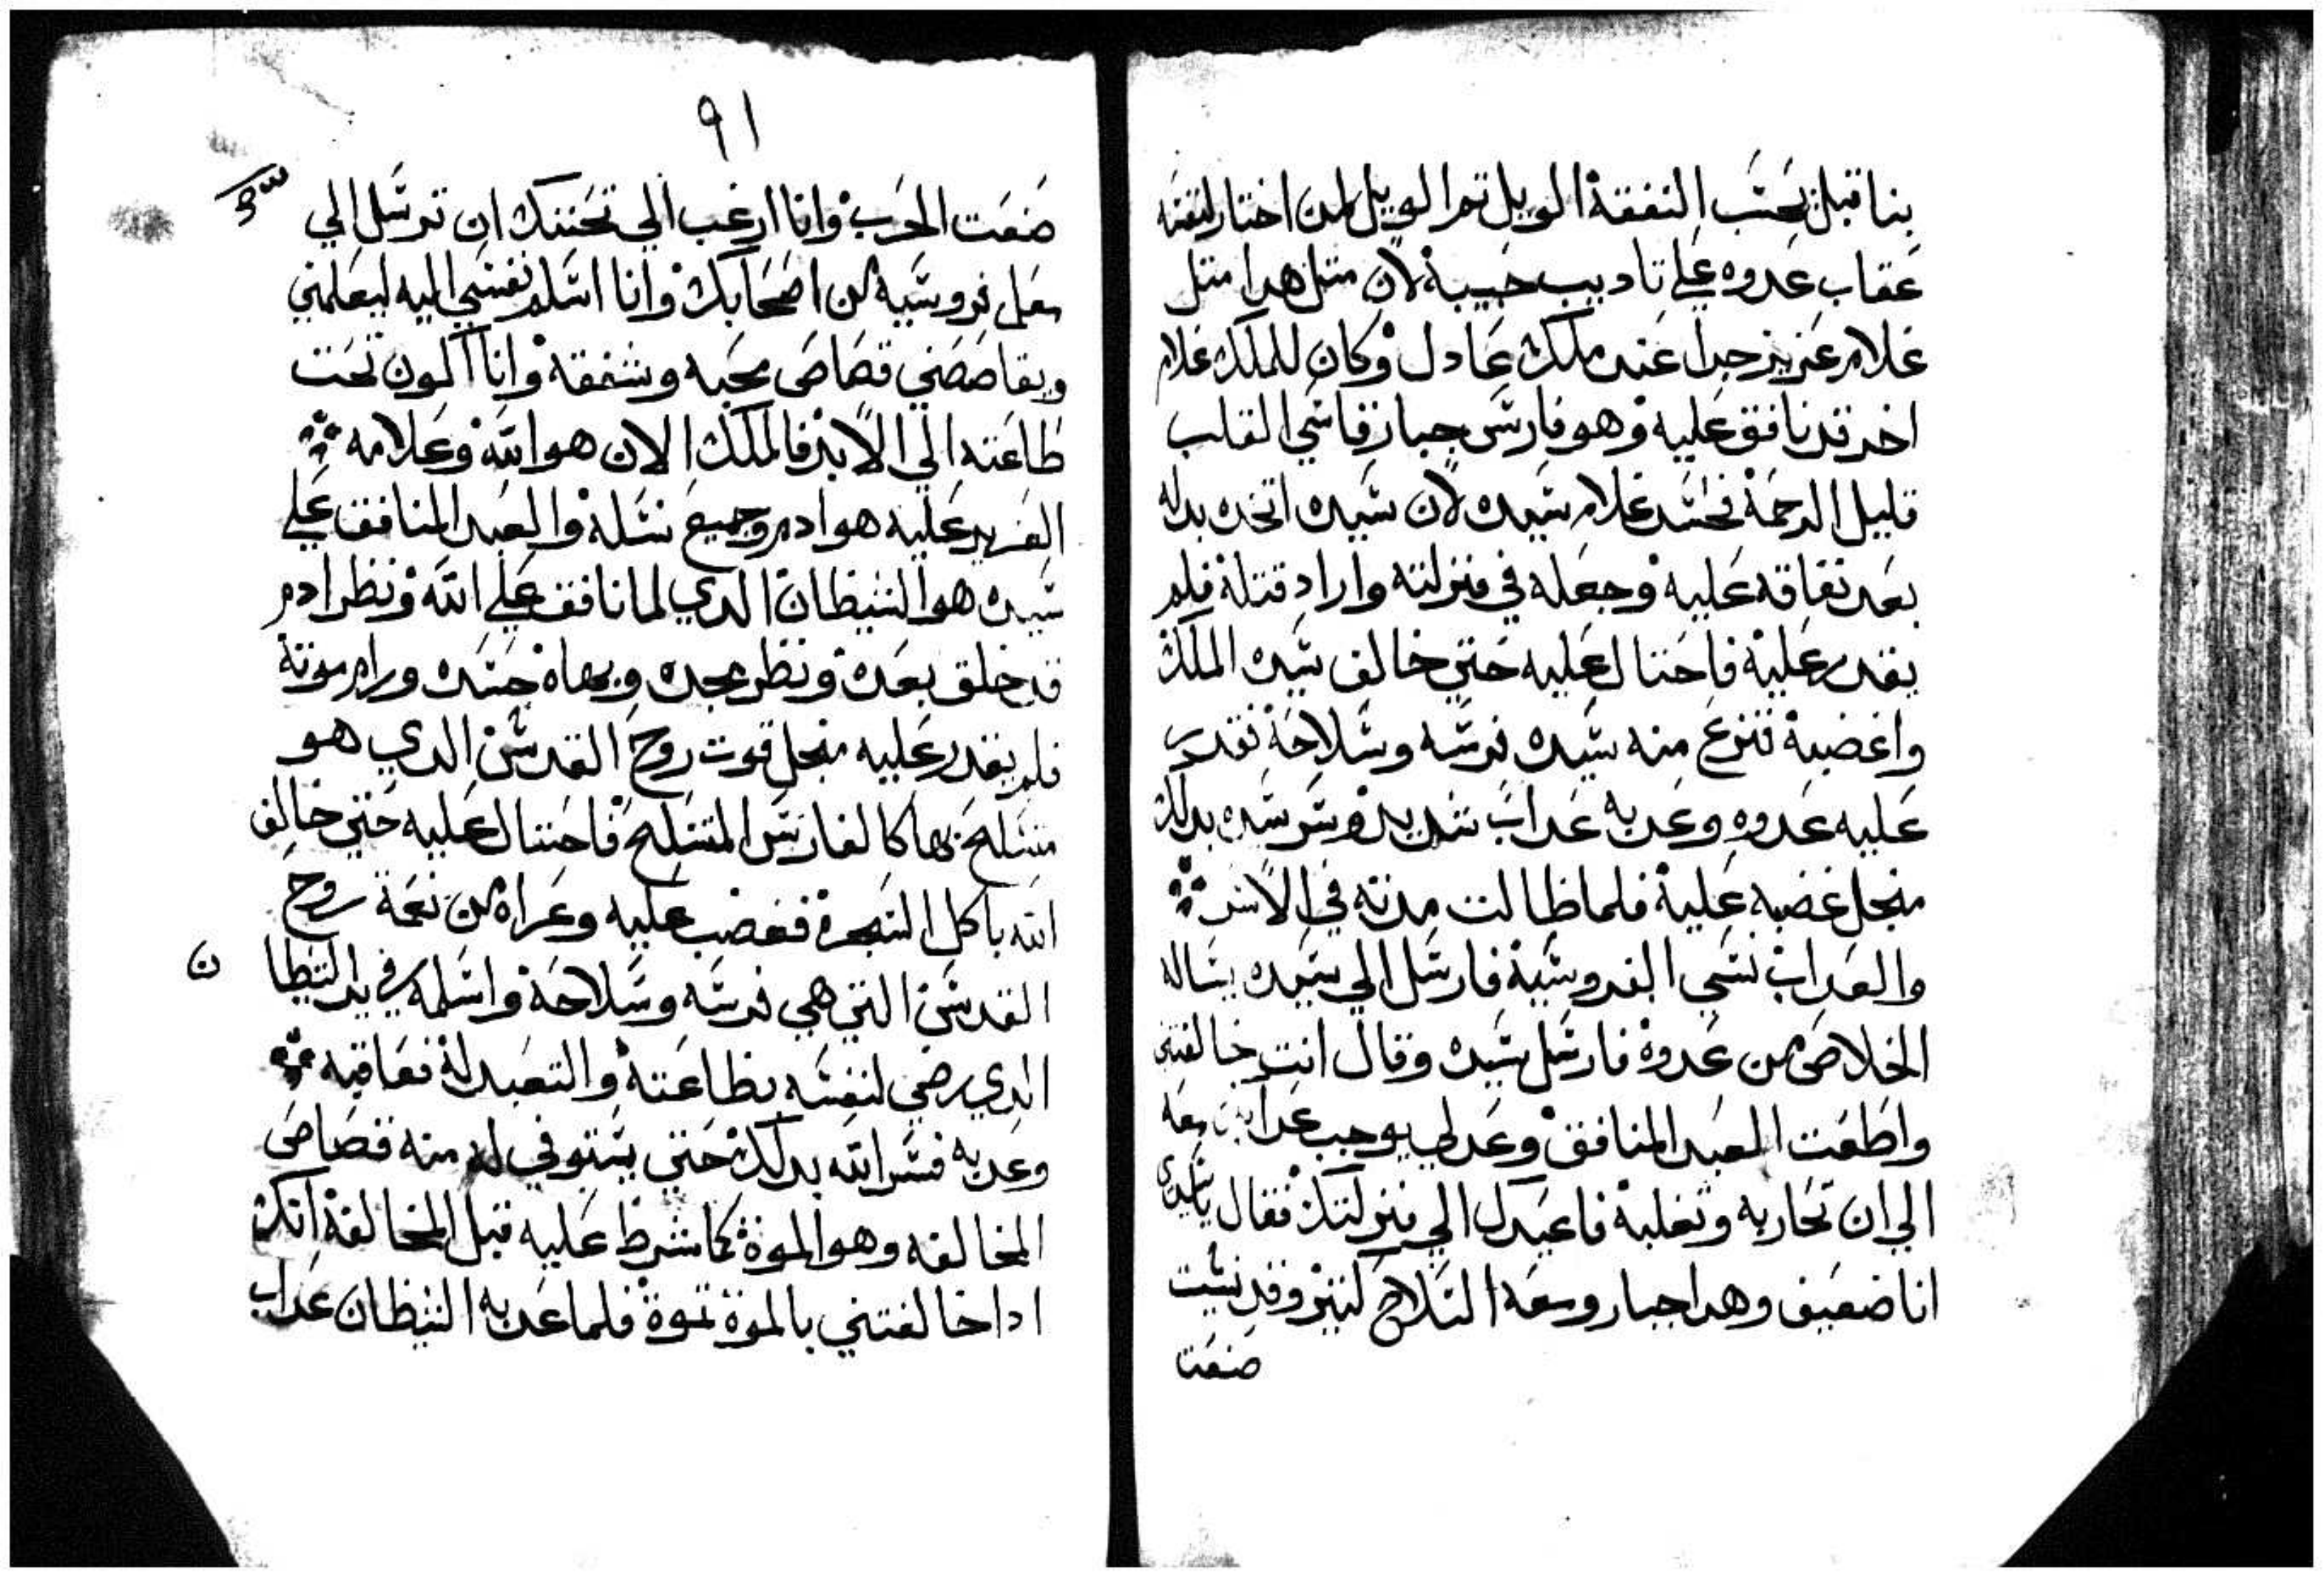 بنا قبل بحسب النفقة الويل تم الويل لمن اختار لنفسه
عقاب عدوه علي تاديب حبيبة لان متل هدا متل
غلام عزيز جدا عند ملك عادل وكان للملك غلام
اخر قد نافق عليه وهو فارس جبار قاسي القلب
قليل الرحمة فحسد غلام سيده لان سيده اتخده بدله
بعد نفاقه عليه وجعله في منزلته واراد قتلة فلم
يقدر علية فاحتال عليه حتي خالف سيده الملك
واغضبة فنزع منه سيده فرسه وسلاحة فقدر
عليه عدوه وعدبه عداب شديد وسر سيده بدلك
منجل غضبه علية فلما طالت مدته في الاسر
والعداب نسي الفروسية فارسل الي سيده يساله
الخلاص من عدوة فارسل سيده وقال انت خالفتني
واطعت العبد المنافق وعدلي يوجب عدابك معه
الي ان تحاربه وتغلبة فاعيدك الي منزلتك فقال ياسيدي
انا ضعيف وهدا جبار ومعه السلاح كتير وقد نسيت
صنعت
٩١
صنعت الحرب وانا ارغب الي تحننك ان ترسل الي
معلم فروسية من اصحابك وانا اسلم نفسي اليه ليعلمني
ويقاصصني قصاص محبه وشفقة وانا اكون تحت
طاعته الي الابد فالملك الان هو الله وغلامه
العزيز عليه هو ادم وجميع نسلة والعبد المنافق علي
سيده هو الشيطان الدي لما نافق علي الله ونظر ادم
قد خلق بعدة ونظر مجده وبهاه حسده ورام موتة
فلم يقدر عليه منجل قوت روح القدس الدي هو
متسلح بها كالفارس المتسلح فاحتال عليه حتي خالف
الله باكل الشجرة فغضب عليه وعراه من نعمة روح
القدس التي هي فرسه وسلاحة واسلمه في يد الشيطا
ن
الدي رضي لنفسه بطاعتة والتعبد لة فعاقبه
وعدبه فسر الله بدلك حتي يستوفي له منه قصاص
المخالفه وهو الموة كما شرط عليه قبل المخالفة انك
ادا خالفتني بالموة تموة فلما عدبه الشيطان عداب